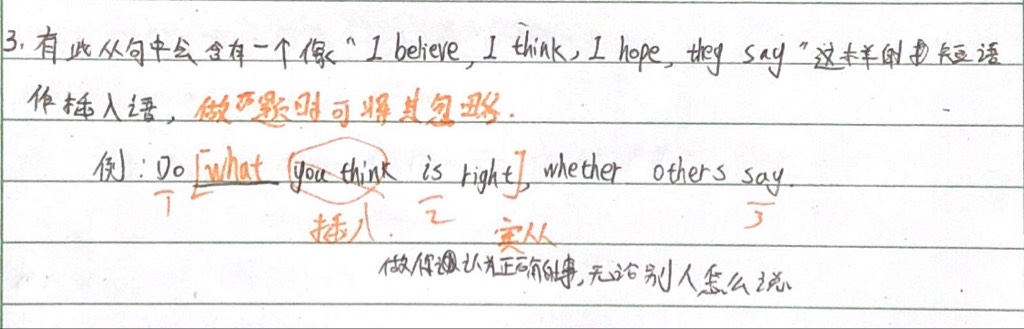 3. 有此从句中会含有一个像“I believe, I think, I hope, they say”这样的短语
作插入语, 做题时可将其忽略.
例: Do [what you think is right], whether others say.
1 插入 2 宾从 3
做你认为正确的事, 无论别人怎么说